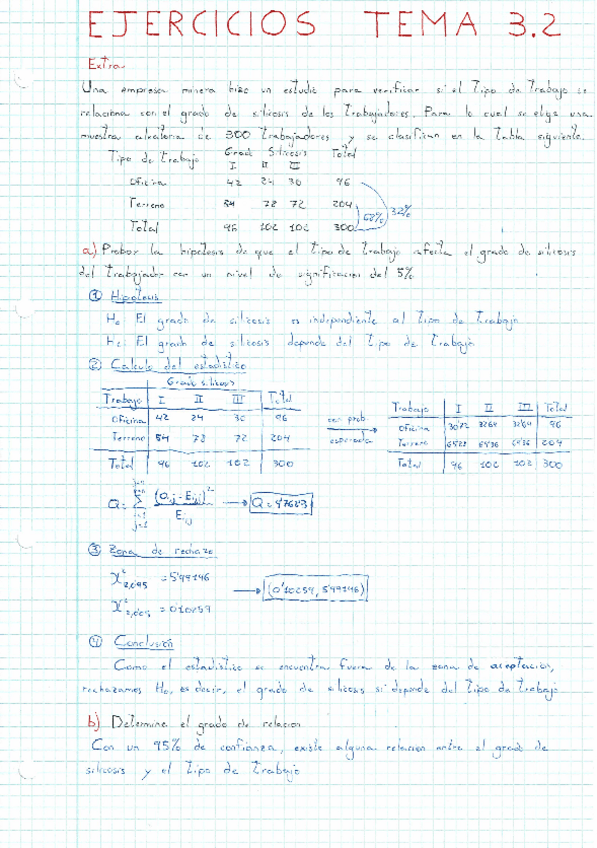 EJERCICIOS TEMA 3.2
Extra
Una empresa minera hizo un estudio para verificar si el Tipo de Trabajo se
relaciona con el grado de silicosis de los Trabajadores. Para lo cual se elige una
muestra aleatoria de 300 Trabajadores y se clasifican en la Tabla siguiente.
Tipo de Trabajo Grado Silicosis Total
I II III
Oficina 42 24 30 96
Terreno 54 78 72 204
Total 96 102 102 300
68% 32%
a) Probar la hipotesis de que el tipo de Trabajo afecta el grado de silicosis
del Trabajador con un nivel de significacion del 5%
① Hipotesis
H₀: El grado de silicosis es independiente al Tipo de Trabajo
El grado de silicosis depende del Tipo de Trabajo
② Calculo del estadistico
Grado silicosis
Trabajo I II III Total
Oficina 42 24 30 96
Terreno 54 78 72 204
Total 96 102 102 300
con prob.
esperada
Trabajo I II III Total
Oficina 30'72 32'64 32'64 96
Terreno 65'28 69'36 69'36 204
Total 96 102 102 300
Q = Σ (Oij - Eij)² / Eij → Q =
③ Zona de rechazo
= 5'99146
→ (0'10259, 5'99146)
= 0'10259
④ Conclusión
Como el estadistico se encuentra fuera de la zona de aceptacion,
rechazamos H₀, es decir, el grado de silicosis si depende del Tipo de Trabajo
b) Determine el grado de relacion
Con un 95% de confianza, existe alguna relacion entre el grado de
silicosis y el Tipo de Trabajo